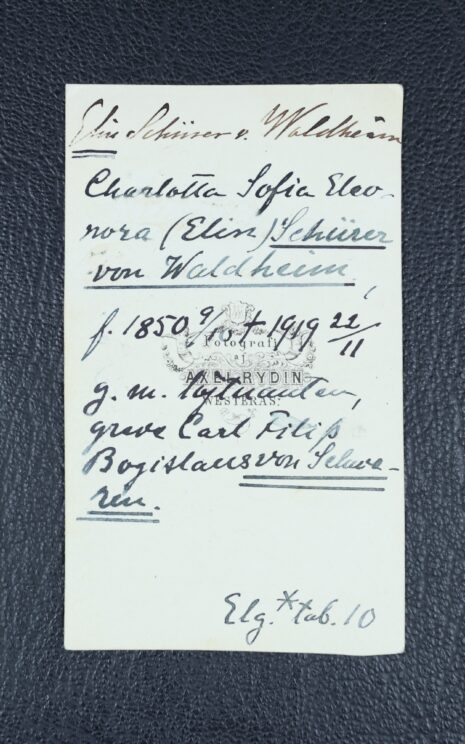 Elin Schürer v. Waldheim
Charlotta Sofia Eleo-
nora (Elin) Schürer
von Waldheim,
f. 1850 9/10 † 1919 22/11
Fotografi
af
AXEL RYDIN
WESTERÅS.
g. m. löjtnanten,
greve Carl Filip
Bogislaus von Schwe-
rin.
Elg.* tab. 10